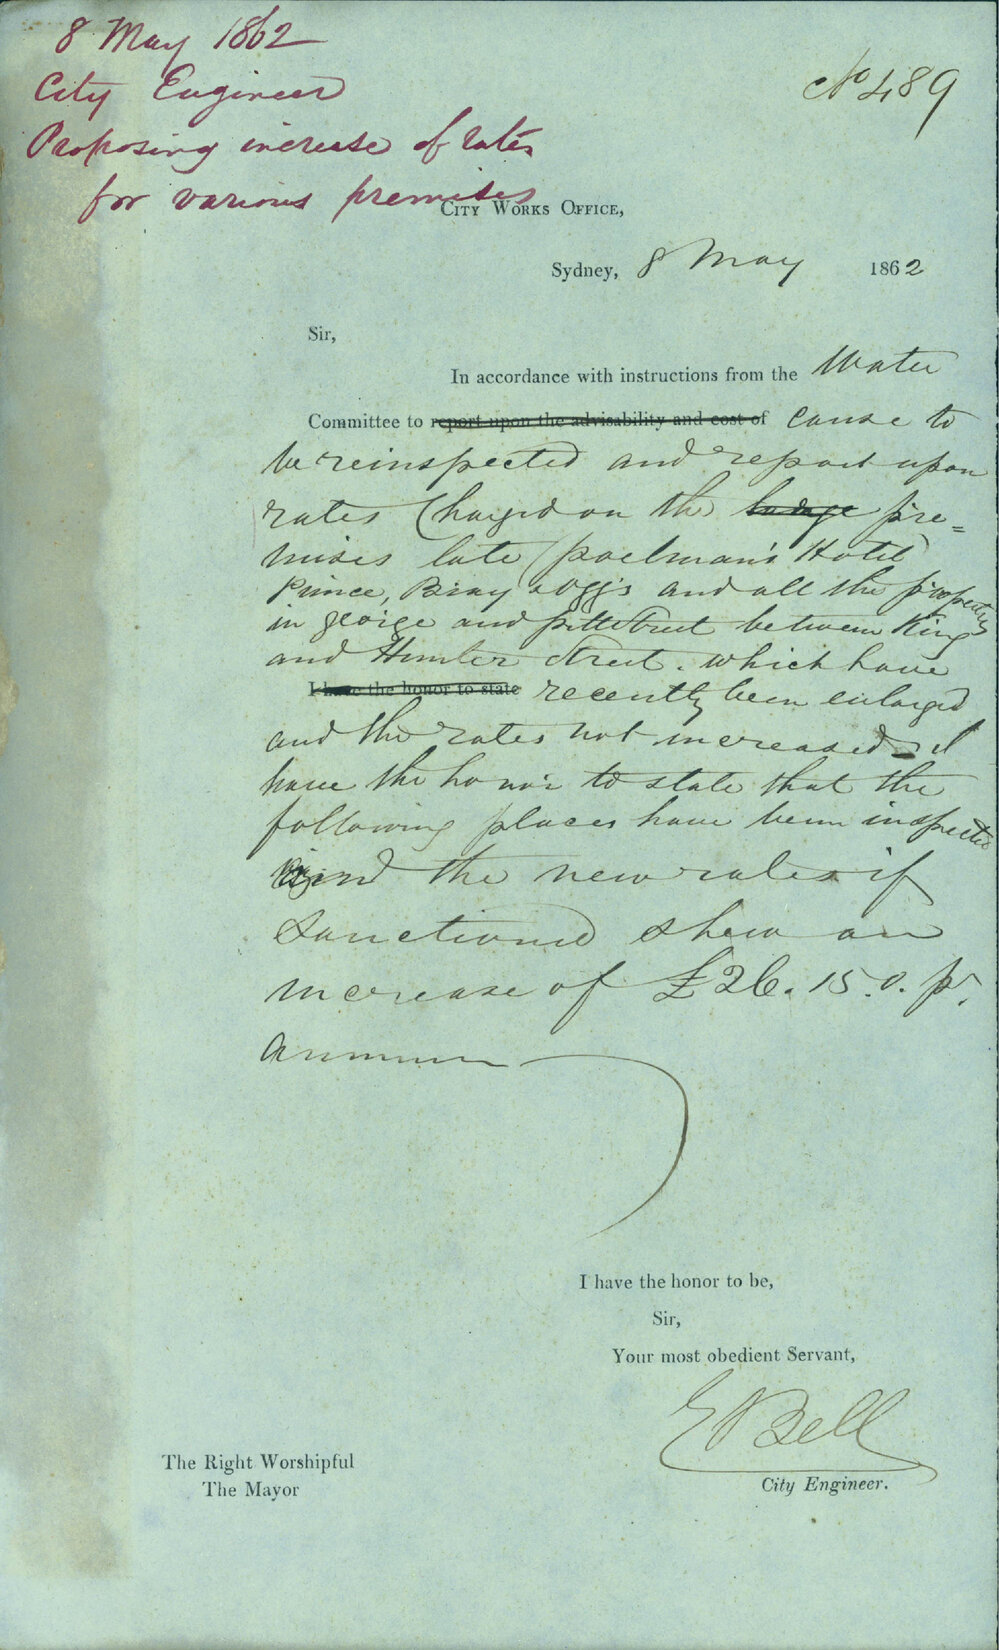 8 May 1862
City Engineer
Proposing increase of rates
for various premises
No 489
CITY WORKS OFFICE,
Sydney, 8 May 1862
Sir,
In accordance with instructions from the Water
Committee to report upon the advisability and cost of cause to
be reinspected and report upon
rates Charged on the large pre=
mises late Poelman's Hotel
Prince, Bray & Ogg's and all the properties
in George and Pitt Street between King
and Hunter Street. which have
I have the honor to state recently been enlarged
and the rates not increased I
have the honor to state that the
following places have been inspected
and the new rates if
Sanctioned shew an
increase of £26.15.0. pr.
Annum
I have the honor to be,
Sir,
Your most obedient Servant,
E Bell
City Engineer.
The Right Worshipful
The Mayor